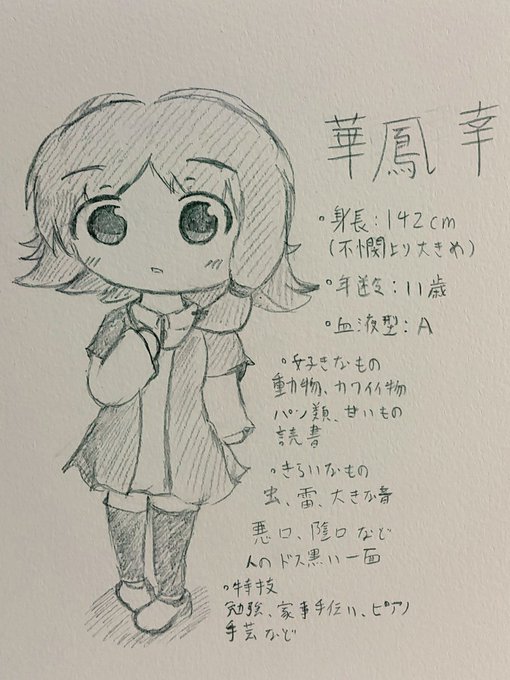 華鳳 幸
・身長:142cm
(不憫より大きめ)
・年齢:11歳
・血液型:A
・好きなもの
動物、カワイイ物
パン類、甘いもの
読書
・きらいなもの
虫、雷、大きな音
悪口、陰口など
人のドス黒い一面
・特技
勉強、家事手伝い、ピアノ
手芸など